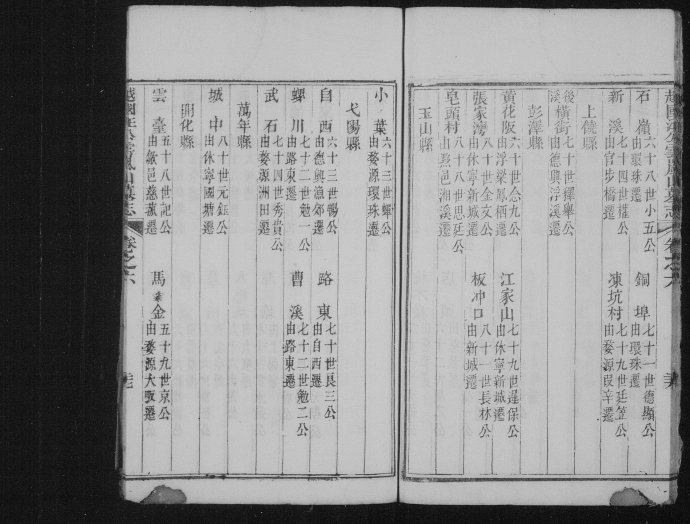 石嶺 六十八世小五公 由環珠遷 銅埠 七十一世德顯公 由環珠遷
新溪 七十四世權公 由官步橋遷 凍坑村 七十九世廷笠公 由婺源叚莘遷
上饒縣
後溪橫街 七十七世稺舉公 由德興浮溪遷
彭澤縣
黃花阪 六十世念九公 由浮梁鳳栖遷 江家山 七十九世暹保公 由休寧新城遷
張家灣 八十世金文公 由休寧新城遷 板冲口 八十一世長林公 由新城遷
皂頭村 八十八世思廷公 由縣邑湘溪遷
玉山縣
越國汪公雲嵐山墓志 卷之六
小葉 六十三世蟬公 由婺源環珠遷
弋陽縣
自西 六十三世暢公 由德興漁郊遷 路東 七十世良三公 由自西遷
螺川 七十二世勉一公 由路東遷 曹溪 七十二世勉二公 由路東遷
武石 七十四世秀貴公 由婺源洲田遷
萬年縣
城中 八十世元鈺公 由休寧國塘遷
開化縣
雲臺 五十八世記公 由歙邑慈菰遷 馬金 五十九世京公 由婺源大畈遷
越國汪公雲嵐山墓志 卷之六